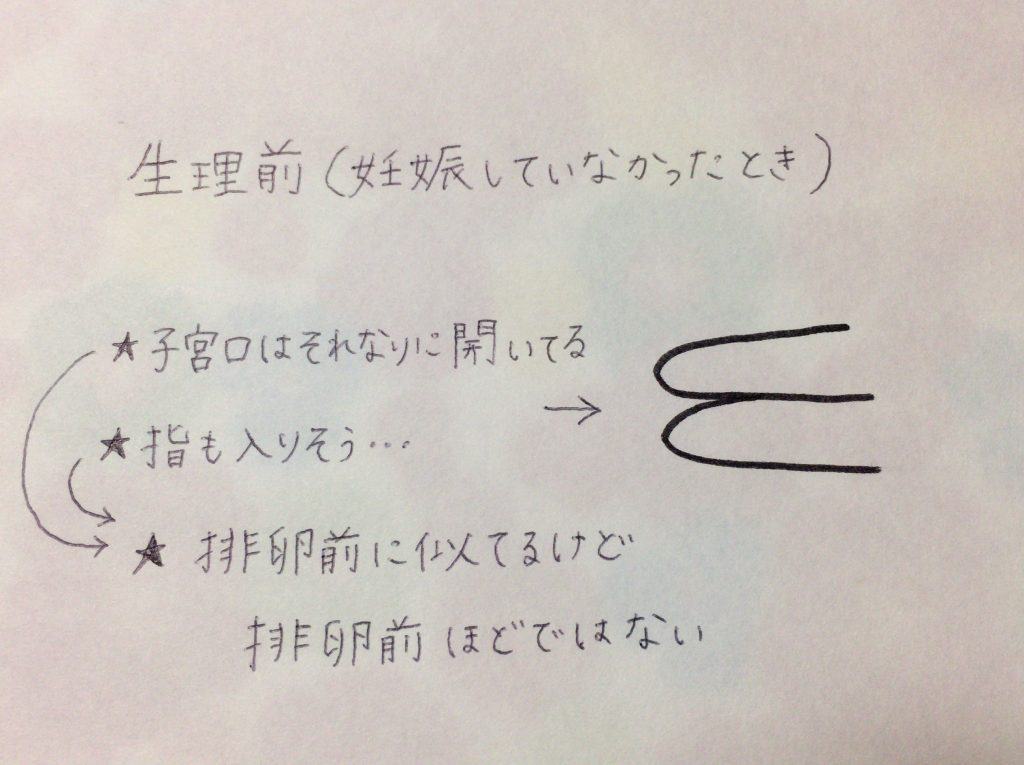 生理前(妊娠していなかったとき)
★子宮口はそれなりに開いてる
★指も入りそう…
→
★排卵前に似てるけど
排卵前ほどではない